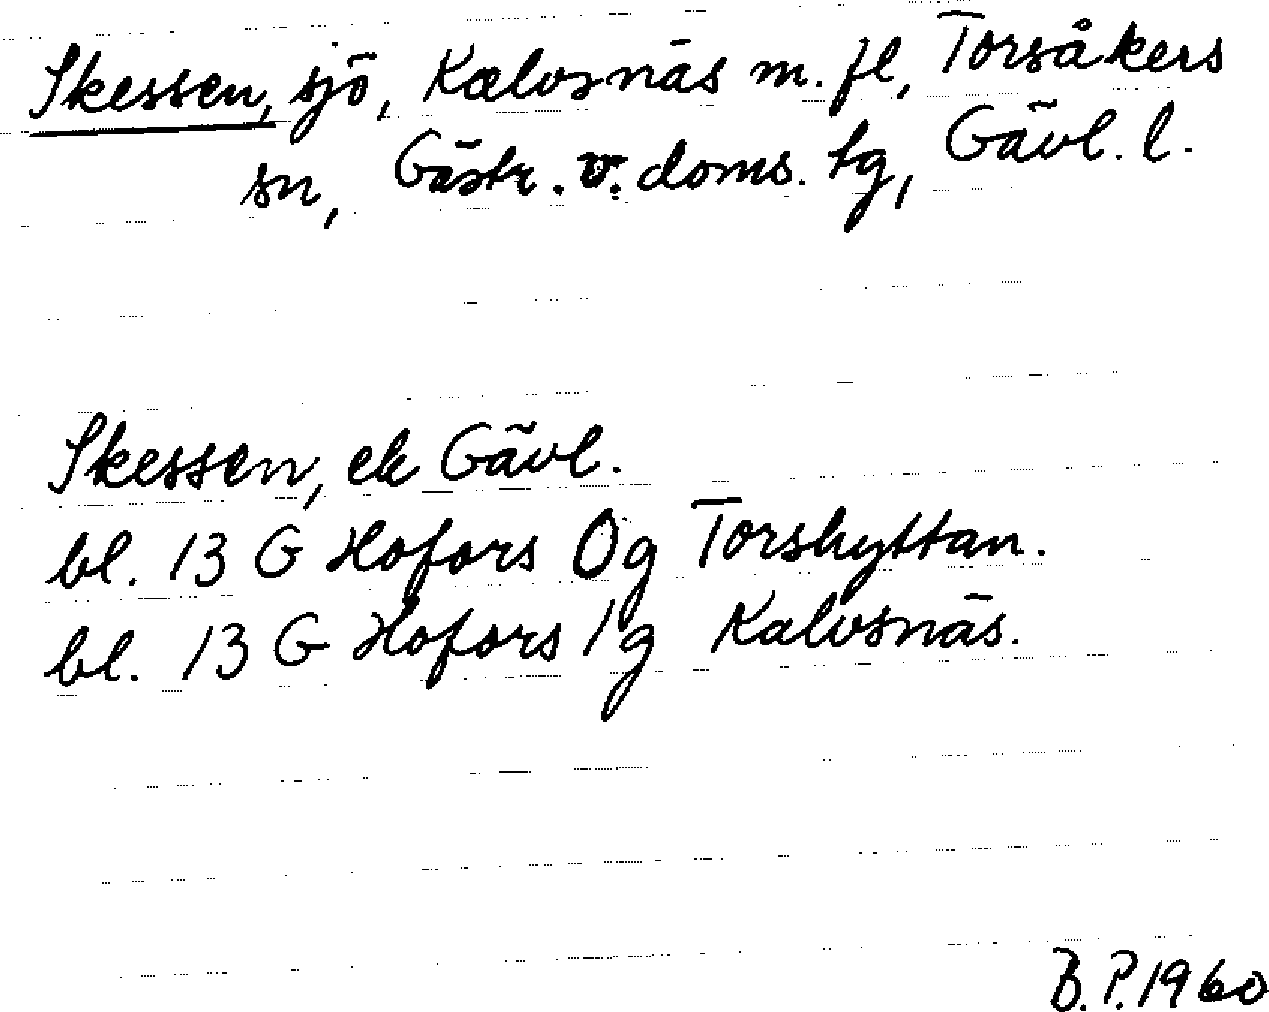 Skessen, sjö, Kalvsnäs m. fl, Torsåkers
sn, Gästr. v. doms. tg, Gävl. l.
Skessen, ek Gävl.
bl. 13 G Hofors 0g Torshyttan.
bl. 13 G Hofors 1g Kalvsnäs.
B.P. 1960